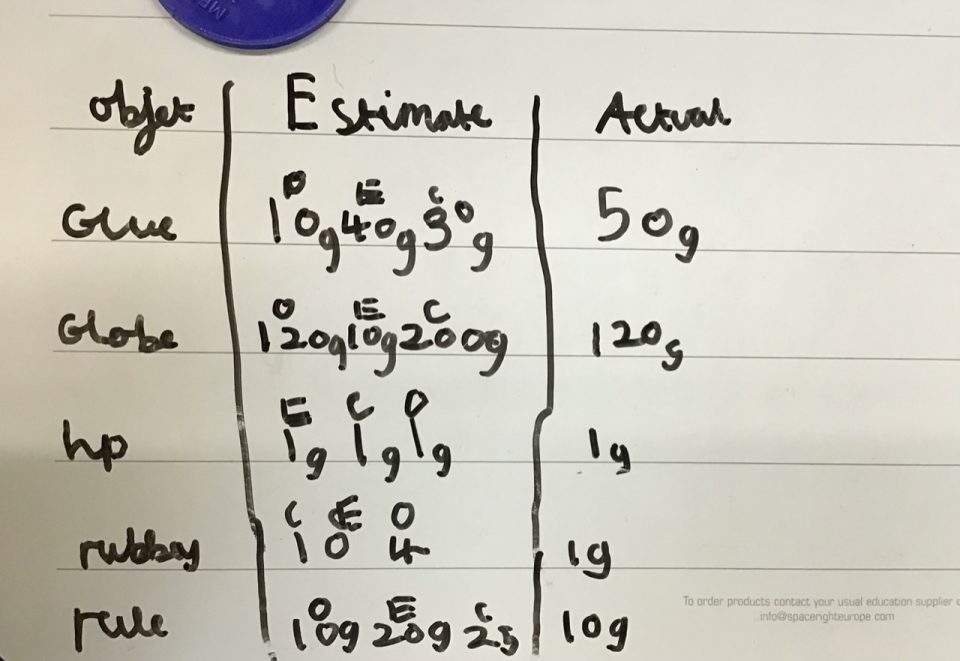 objet Estimate Actual
D E C
Glue 10g 40g 30g 50g
O E C
Globe 120g 10g 200g 120g
E C O
hp 1g 1g 1g 1g
C E O
1 0 4 1g
To order products contact your usual education supplier
info@spacerighteurope.com
O E C
rule 10g 20g 25 10g